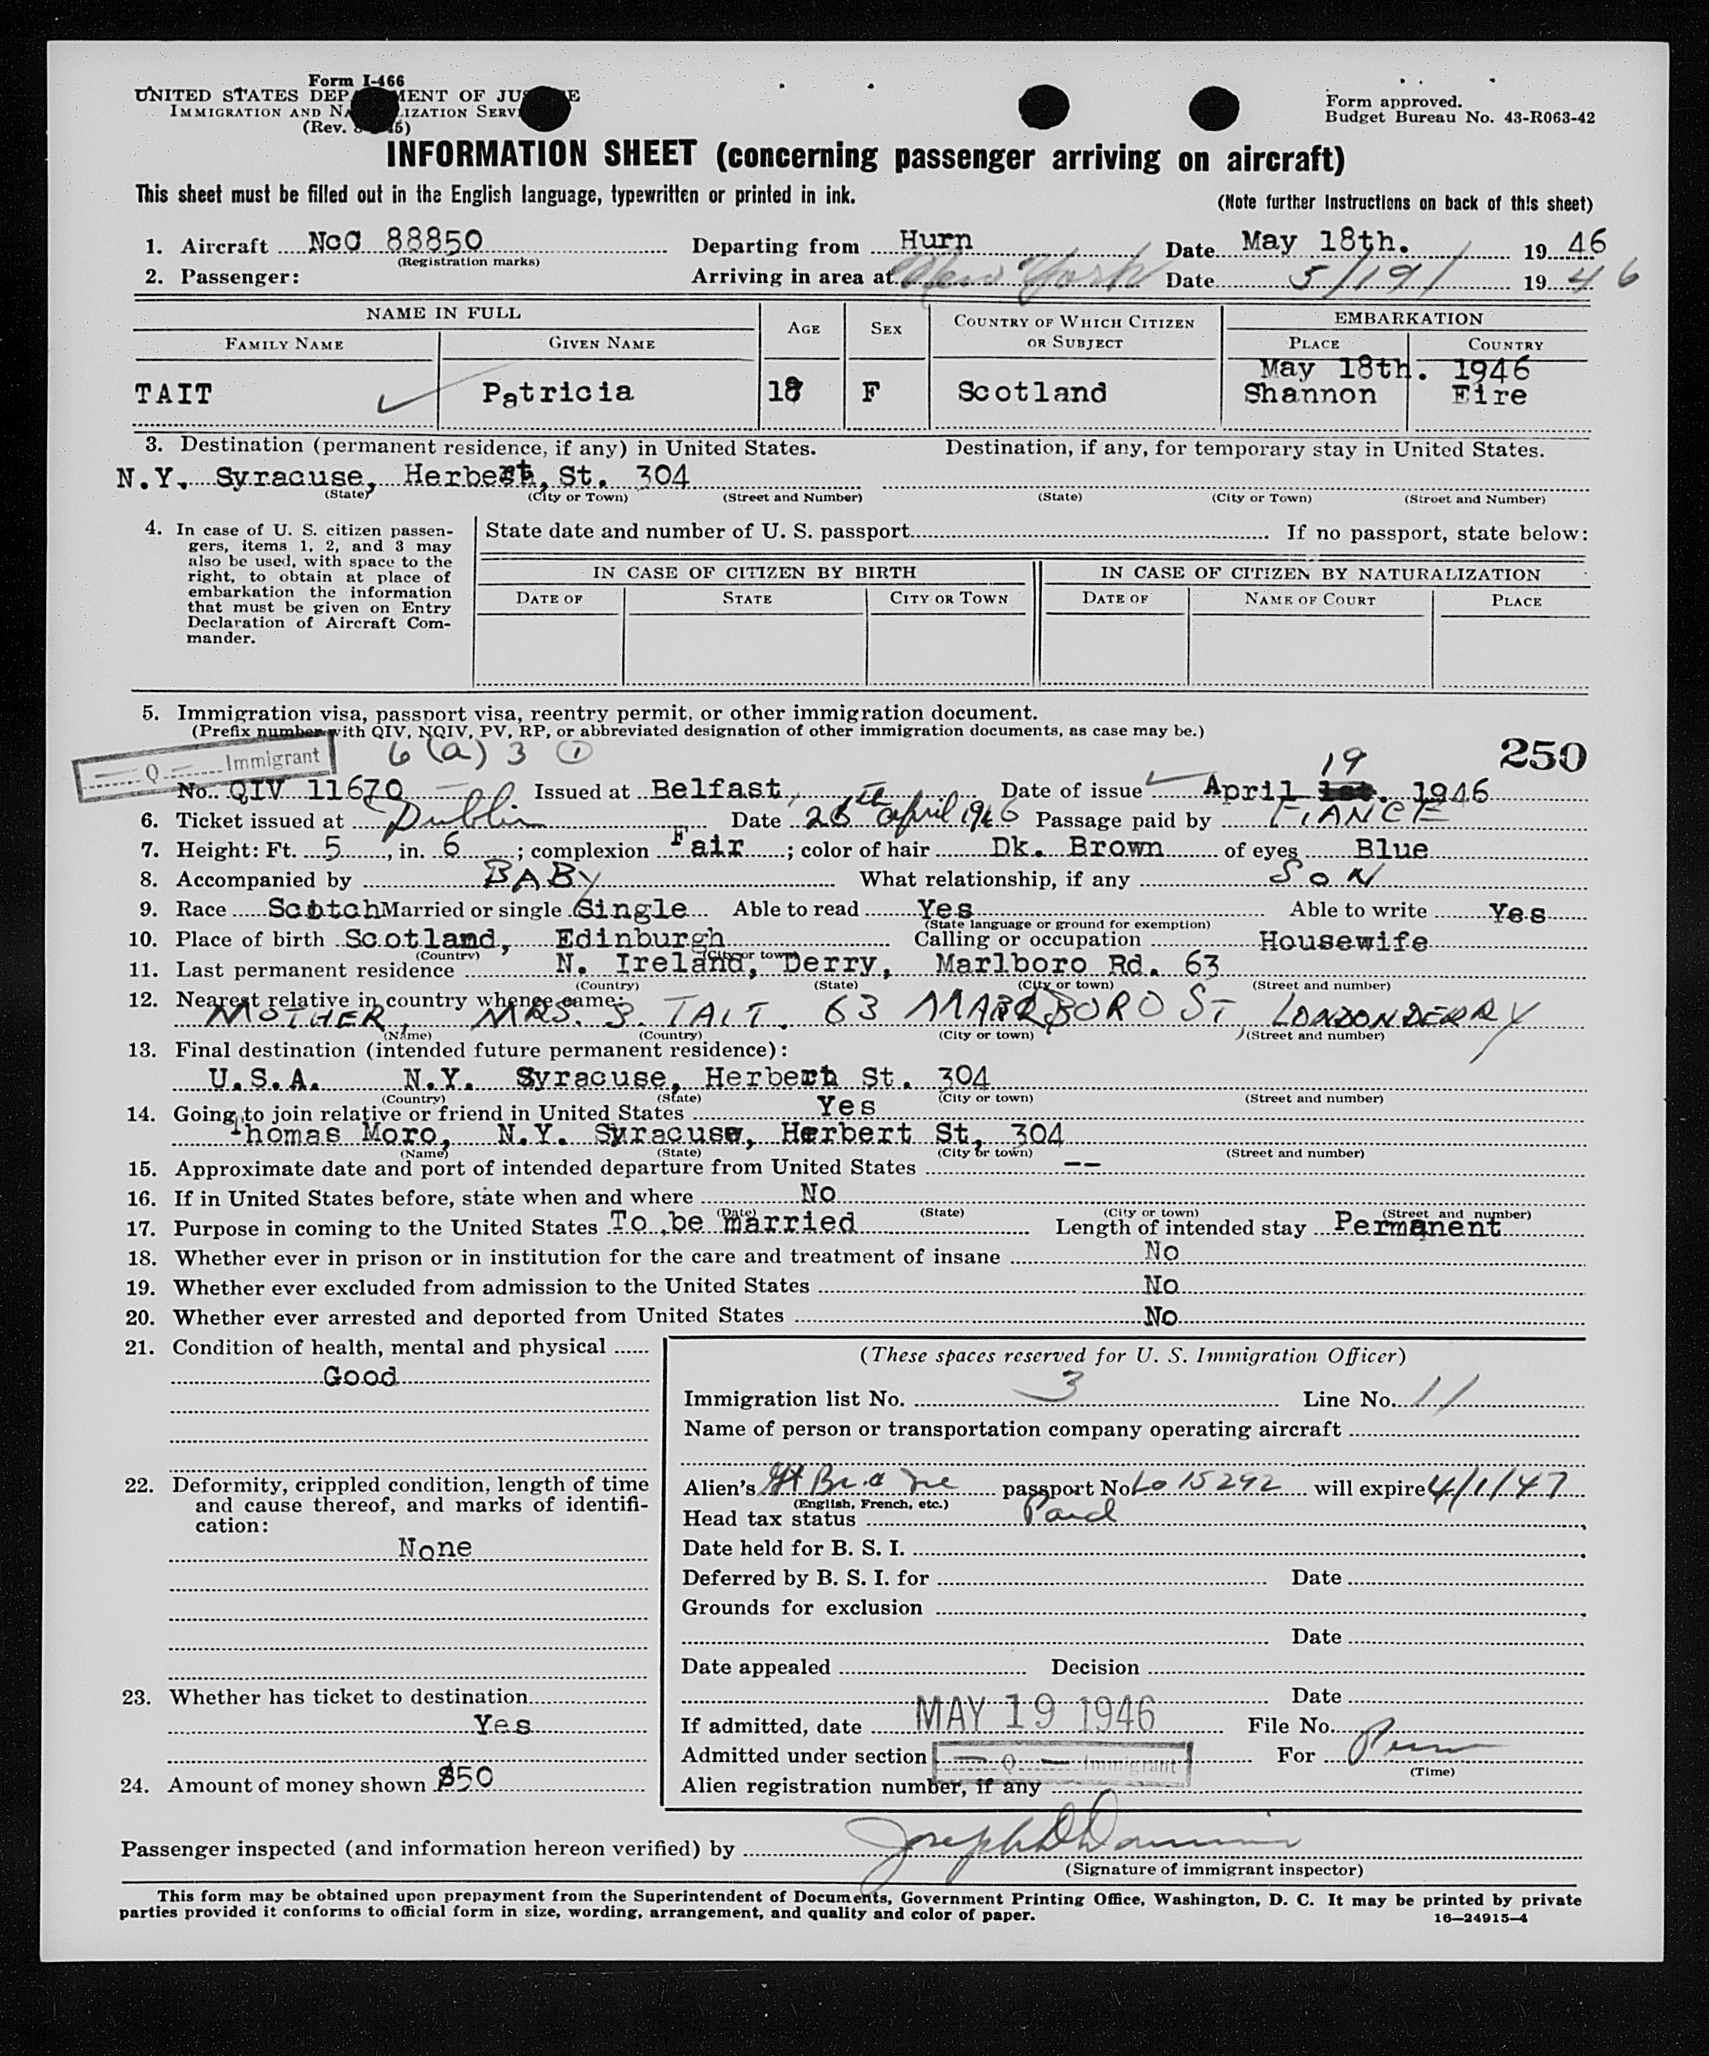 Form I-466
UNITED STATES DEP MENT OF JUS E
IMMIGRATION AND NA IZATION SERVI
(Rev. 5)
Form approved.
Budget Bureau No. 43-R063-42
INFORMATION SHEET (concerning passenger arriving on aircraft)
This sheet must be filled out in the English language, typewritten or printed in ink.
(Note further instructions on back of this sheet)
1. Aircraft NcC 88850 Departing from Hurn Date May 18th. 19 46
(Registration marks)
2. Passenger: Arriving in area at New York Date 5/19/ 19 46
NAME IN FULL AGE SEX COUNTRY OF WHICH CITIZEN OR SUBJECT EMBARKATION
FAMILY NAME GIVEN NAME PLACE COUNTRY
May 18th. 1946
TAIT Patricia 18 F Scotland Shannon Eire
3. Destination (permanent residence, if any) in United States. Destination, if any, for temporary stay in United States.
N.Y. Syracuse, Herbert, St. 304
(State) (City or Town) (Street and Number) (State) (City or Town) (Street and Number)
4. In case of U. S. citizen passen-
gers, items 1, 2, and 3 may
also be used, with space to the
right, to obtain at place of
embarkation the information
that must be given on Entry
Declaration of Aircraft Com-
mander.
State date and number of U. S. passport If no passport, state below:
IN CASE OF CITIZEN BY BIRTH IN CASE OF CITIZEN BY NATURALIZATION
DATE OF STATE CITY OR TOWN DATE OF NAME OF COURT PLACE
5. Immigration visa, passport visa, reentry permit, or other immigration document.
(Prefix number with QIV, NQIV, PV, RP, or abbreviated designation of other immigration documents, as case may be.)
Q Immigrant 6 (a) 3 1 19 250
No. QIV 11670 Issued at Belfast, Date of issue April 1st. 1946
6. Ticket issued at Dublin Date 26th April 1946 Passage paid by FIANCE
7. Height: Ft. 5, in. 6; complexion Fair; color of hair Dk. Brown of eyes Blue
8. Accompanied by BABY What relationship, if any SON
9. Race Scotch Married or single Single Able to read Yes Able to write Yes
(State language or ground for exemption)
10. Place of birth Scotland, Edinburgh Calling or occupation Housewife
(Country) (City or town)
11. Last permanent residence N. Ireland, Derry, Marlboro Rd. 63
(Country) (State) (City or town) (Street and number)
12. Nearest relative in country whence came:
MOTHER, MRS. S. TAIT. 63 MARLBORO ST, LONDONDERRY
(Name) (Country) (City or town) (Street and number)
13. Final destination (intended future permanent residence):
U.S.A. N.Y. Syracuse, Herbert St. 304
(Country) (State) (City or town) (Street and number)
14. Going to join relative or friend in United States Yes
Thomas Moro, N.Y. Syracuse, Herbert St, 304
(Name) (State) (City or town) (Street and number)
15. Approximate date and port of intended departure from United States --
16. If in United States before, state when and where No
(Date) (State) (City or town) (Street and number)
17. Purpose in coming to the United States To be married Length of intended stay Permanent
18. Whether ever in prison or in institution for the care and treatment of insane No
19. Whether ever excluded from admission to the United States No
20. Whether ever arrested and deported from United States No
21. Condition of health, mental and physical
Good
22. Deformity, crippled condition, length of time
and cause thereof, and marks of identifi-
cation:
None
23. Whether has ticket to destination
Yes
24. Amount of money shown $50
(These spaces reserved for U. S. Immigration Officer)
Immigration list No. 3 Line No. 11
Name of person or transportation company operating aircraft
Alien's passport No. Lo 15292 will expire 4/1/47
(English, French, etc.)
Head tax status Paid
Date held for B. S. I.
Deferred by B. S. I. for Date
Grounds for exclusion
Date
Date appealed Decision
Date
If admitted, date MAY 19 1946 File No.
Admitted under section Q Immigrant For Perm
(Time)
Alien registration number, if any
Passenger inspected (and information hereon verified) by Joseph
(Signature of immigrant inspector)
This form may be obtained upon prepayment from the Superintendent of Documents, Government Printing Office, Washington, D. C. It may be printed by private
parties provided it conforms to official form in size, wording, arrangement, and quality and color of paper.
16—24915-4